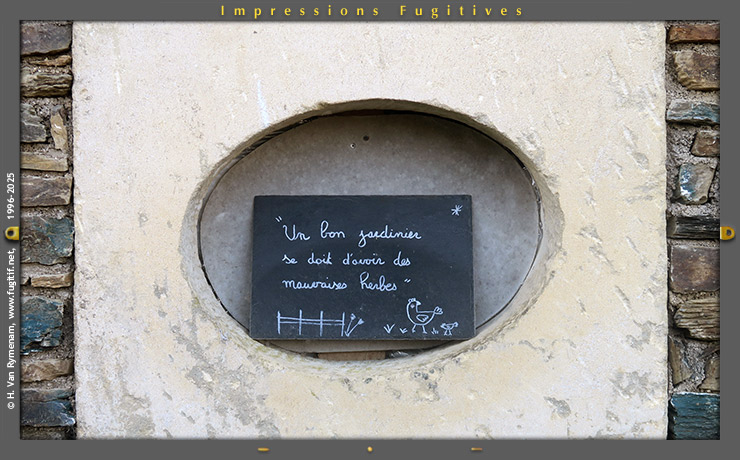 Impressions Fugitives
"Un bon jardinier
se doit d'avoir des
mauvaises herbes"
© H. Van Rymenam, www.fugitif.net, 1996-2025